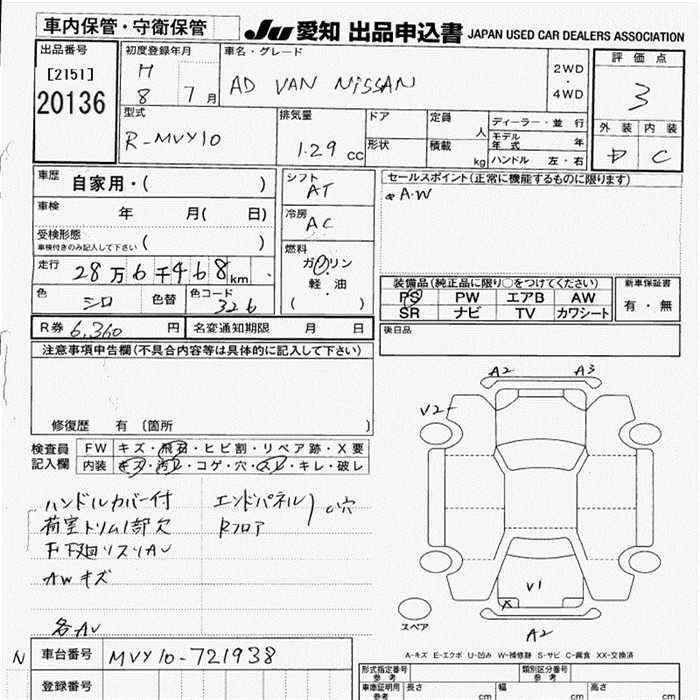 車内保管・守衛保管
JU 愛知 出品申込書 JAPAN USED CAR DEALERS ASSOCIATION
出品番号
[2151]
20136
初度登録年月
H
8 7月
車名・グレード
AD VAN NISSAN
2WD
・
4WD
評価点
3
外装 内装
D C
型式
R-MVY10
排気量
1.29 cc
ドア
形状
定員
人
積載
kg
ディーラー・並行
モデル年式 年
ハンドル 左・右
車歴 自家用・( )
車検 年 月( 日)
受検形態
車検付きのみ記入して下さい ( )
走行 28万6千468km
色 シロ 色替 色コード 326
シフト
AT
冷房
AC
燃料
ガソリン
軽・油
( )
セールスポイント(正常に機能するものに限ります)
A.W
装備品(純正品に限り○をつけてください)
PS PW エアB AW
SR ナビ TV カワシート
新車保証書
有・無
後日品
R券 6,360 円 名変通知期限 月 日
注意事項申告欄(不具合内容等は具体的に記入して下さい)
修復歴 有 〔箇所 〕
検査員記入欄
FW キズ・飛石・ヒビ割・リペア跡・X要
内装 キズ・汚レ・コゲ・穴・スレ・キレ・破レ
ハンドルカバー付 エンドパネル
荷室トリム1部欠 Rフロア
C穴
AWキズ
各AU
A2 A3
V2
V1
X
A2
スペア
A-キズ E-エクボ U-凹み W-補修跡 S-サビ C-腐食 XX-交換済
N 車台番号 MVY10-721938
登録番号
型式指定番号 参考
類別区分番号 参考
車庫証明用 参考 長さ cm 幅 cm 高さ cm